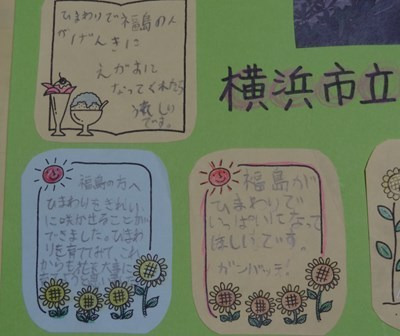 ひまわりで福島の人
がげんきに
えがおに
なってくれたら
嬉しい
です。
横浜市立
福島の方へ
ひまわりをきれい
に咲かせることが
できました。ひまわ
りを育てて、これ
からも花を大事に
福島が
ひまわりで
いっぱいになって
ほしいです。
ガンバッテ!